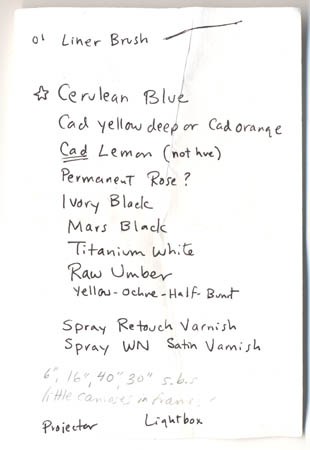 01 Liner Brush
☆ Cerulean Blue
Cad yellow deep or Cad orange
Cad Lemon (not hue)
Permanent Rose?
Ivory Black
Mars Black
Titanium White
Raw Umber
Yellow-Ochre-Half-Burnt
Spray Retouch Varnish
Spray WN Satin Varnish
6", 16", 40", 30" s.b.s
little canvases in
Projector Lightbox